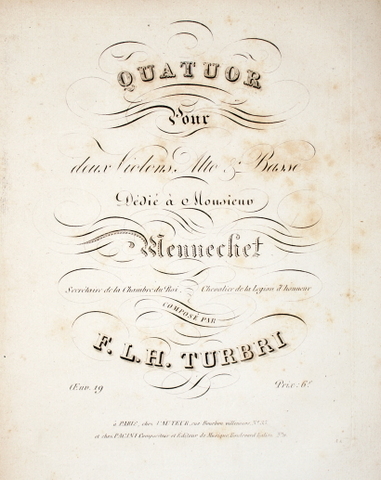 QUATUOR
Pour
deux Violons, Alto & Basse
Dédié à Monsieur
Mennechet
Secrétaire de la Chambre du Roi, Chevalier de la Légion d'honneur
COMPOSÉ PAR
F. L. H. TURBRI
Œuv. 19 Prix: 6f
à PARIS, chez l'AUTEUR, rue Bourbon villeneuve, No
et chez PACINI Compositeur et Editeur de Musique, Boulevard Italien,